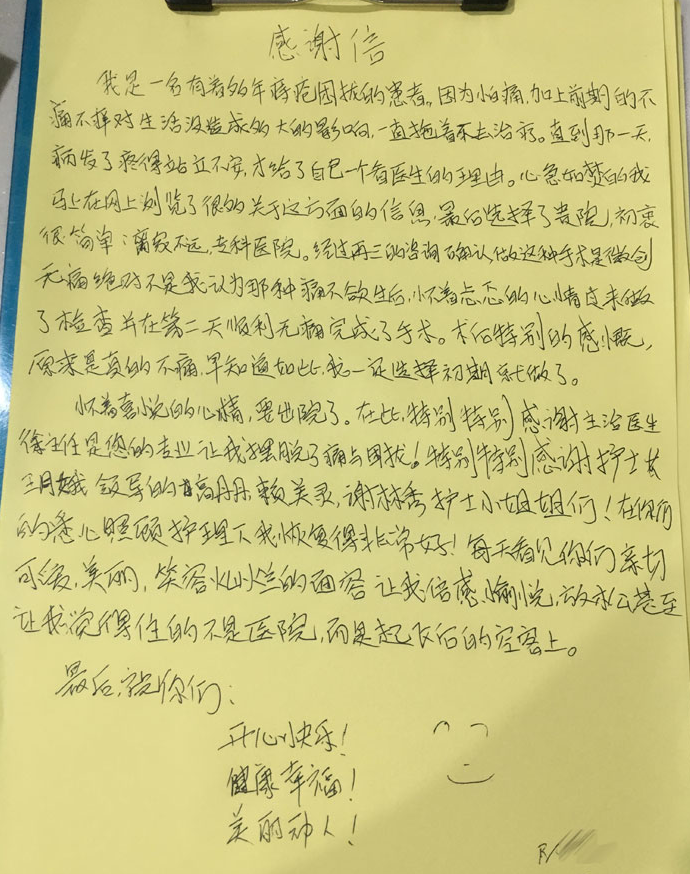 感谢信
我是一名有着多年痔疮困扰的患者。因为怕痛,加上前期的不
痛不痒对生活没造成多大的影响,一直拖着未去治疗。直到那一天,
病发了疼得站立不安,才给了自己一个看医生的理由。心急如焚的我
马上在网上浏览了很多关于这方面的信息,最后选择了贵院,初衷
很简单:离家不远,专科医院。经过再三的咨询确认,做这种手术是微创
无痛绝对不是我认为那种痛不欲生后,怀着忐忑的心情过来做
了检查并在第二天顺利无痛完成了手术。术后特别的感慨,
原来是真的不痛,早知道如此,我一定选择初期就做了。
怀着喜悦的心情,要出院了。在此,特别特别感谢主治医生
徐主任是您的专业让我摆脱了痛与困扰!特别特别感谢护士长
领导的高丹丹,赖美灵,谢林秀护士小姐姐们!在你们
的悉心照顾护理下我恢复得非常好!每天看见你们亲切
可爱,美丽,笑容灿烂的面容让我倍感愉悦,放松甚至
让我觉得住的不是医院,而是起飞后的空客上。
最后,祝你们:
开心快乐!
健康幸福!
美丽动人!